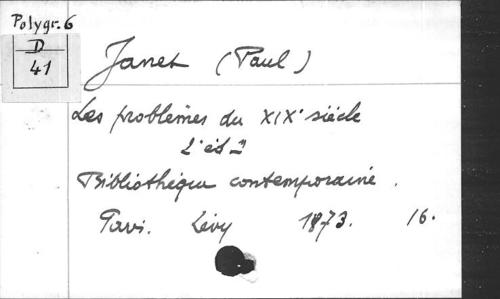 Polygr. 6
D
41
Janet (Paul)
Les problèmes du XIXe siècle
2e éd
Bibliothèque contemporaine.
Paris. Lévy 1873. 16.